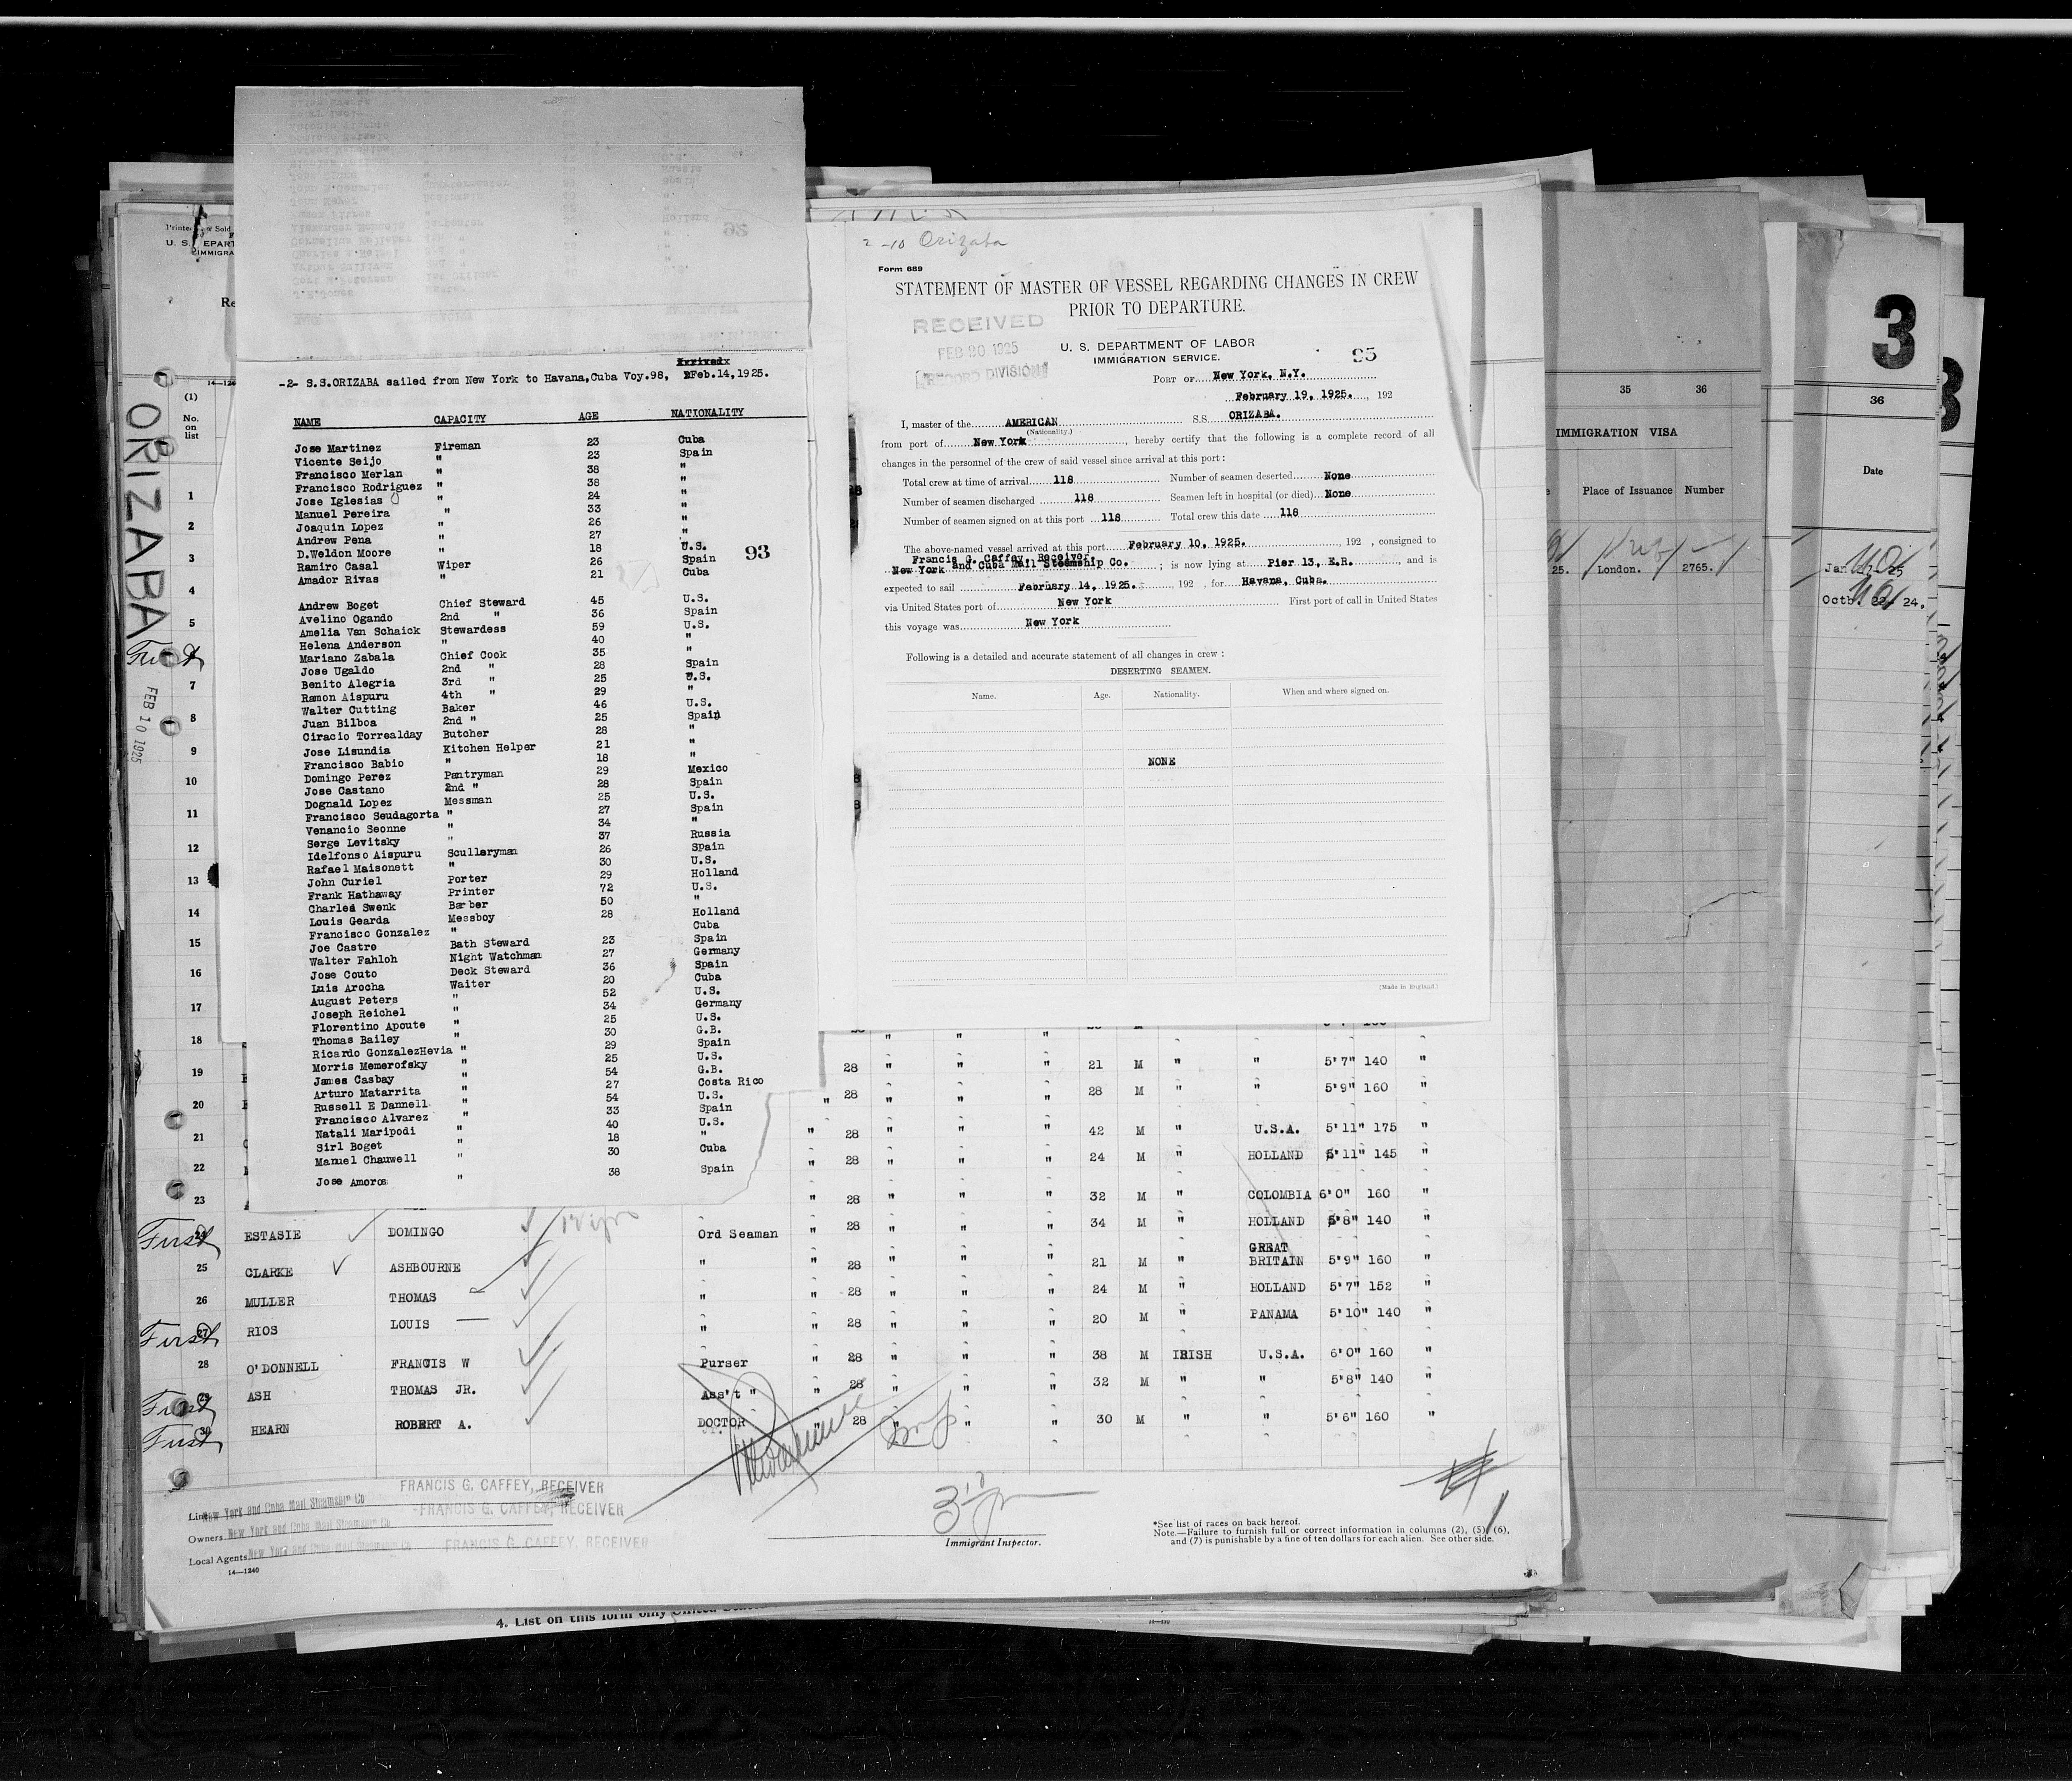 -2- S.S.ORIZABA sailed from New York to Havana,Cuba Voy.98, Feb.14,1925.
NAME CAPACITY AGE NATIONALITY
Jose Martinez Fireman 23 Cuba
Vicente Seijo " 23 Spain
Francisco Merlan " 38 "
Francisco Rodriguez " 38 "
Jose Iglesias " 24 "
Manuel Pereira " 33 "
Joaquin Lopez " 26 "
Andrew Pena " 27 "
D.Weldon Moore " 18 U.S.
Ramiro Casal Wiper 26 Spain
Amador Rivas " 21 Cuba
93
Andrew Boget Chief Steward 45 U.S.
Avelino Ogando 2nd " 36 Spain
Amelia Van Schaick Stewardess 59 U.S.
Helena Anderson " 40 "
Mariano Zabala Chief Cook 35 "
Jose Ugaldo 2nd " 28 Spain
Benito Alegria 3rd " 25 U.S.
Ramon Aispuru 4th " 29 "
Walter Cutting Baker 46 U.S.
Juan Bilboa 2nd " 25 Spain
Ciracio Torrealday Butcher 28 "
Jose Lisundia Kitchen Helper 21 "
Francisco Babio " 18 "
Domingo Perez Pantryman 29 Mexico
Jose Castano 2nd " 28 Spain
Dognald Lopez Messman 25 U.S.
Francisco Seudagorta " 27 Spain
Venancio Seonne " 34 "
Serge Levitsky " 37 Russia
Idelfonso Aispuru Sculleryman 26 Spain
Rafael Maisonett " 30 U.S.
John Curiel Porter 29 Holland
Frank Hathaway Printer 72 U.S.
Charles Swenk Barber 50 "
Louis Gearda Messboy 28 Holland
Francisco Gonzalez " Cuba
Joe Castro Bath Steward 23 Spain
Walter Fahloh Night Watchman 27 Germany
Jose Couto Deck Steward 36 Spain
Luis Arocha Waiter 20 Cuba
August Peters " 52 U.S.
Joseph Reichel " 34 Germany
Florentino Apoute " 25 U.S.
Thomas Bailey " 30 G.B.
Ricardo GonzalezHevia " 29 Spain
Morris Memerofsky " 25 U.S.
James Casbay " 54 G.B.
Arturo Matarrita " 27 Costa Rico
Russell E Dannell " 54 U.S.
Francisco Alvarez " 33 Spain
Natali Maripodi " 40 U.S.
Sirl Boget " 18 "
Manuel Chauwell " 30 Cuba
Jose Amoros " 38 Spain
2-10 Orizaba
Form 689
STATEMENT OF MASTER OF VESSEL REGARDING CHANGES IN CREW
PRIOR TO DEPARTURE.
RECEIVED
FEB 20 1925
RECORD DIVISION
U. S. DEPARTMENT OF LABOR
IMMIGRATION SERVICE.
95
PORT OF New York, N.Y.
February 19, 1925. , 192
I, master of the AMERICAN S.S. ORIZABA.
(Nationality.)
from port of New York , hereby certify that the following is a complete record of all
changes in the personnel of the crew of said vessel since arrival at this port:
Total crew at time of arrival 118 Number of seamen deserted None
Number of seamen discharged 118 Seamen left in hospital (or died) None
Number of seamen signed on at this port 118 Total crew this date 118
The above-named vessel arrived at this port February 10, 1925. , 192 , consigned to
Francis G. Caffey, Receiver.
New York and Cuba Mail Steamship Co. ; is now lying at Pier 13, E.R. , and is
expected to sail February 14, 1925. , 192 , for Havana, Cuba.
via United States port of New York First port of call in United States
this voyage was New York
Following is a detailed and accurate statement of all changes in crew:
DESERTING SEAMEN.
Name. Age. Nationality. When and where signed on.
NONE
(Made in England.)
35 36
IMMIGRATION VISA
Place of Issuance Number
25. London. 2765.
3
36
Date
Octb. 22 24.
U. S. DEPART
IMMIGRA
14—1240
(1)
No. on list
ORIZABA
FEB 10 1925
1
2
3
4
5
7
8
9
10
11
12
13
14
15
16
17
18
19
20
21
22
23
28 " " " 21 M " " 5'7" 140 "
" 28 " " " 28 M " " 5'9" 160 "
" 28 " " " 42 M " U.S.A. 5'11" 175 "
" 28 " " " 24 M " HOLLAND 5'11" 145 "
" 28 " " " 32 M " COLOMBIA 6'0" 160 "
First 24 ESTASIE DOMINGO Ord Seaman " 28 " " " 34 M " HOLLAND 5'8" 140 "
25 CLARKE ASHBOURNE " " 28 " " " 21 M " GREAT BRITAIN 5'9" 160 "
26 MULLER THOMAS " " 28 " " " 24 M " HOLLAND 5'7" 152 "
First 27 RIOS LOUIS " " 28 " " " 20 M " PANAMA 5'10" 140 "
28 O'DONNELL FRANCIS W Purser " 28 " " " 38 M IRISH U.S.A. 6'0" 160 "
First 29 ASH THOMAS JR. Ass't " " 28 " " " 32 M " " 5'8" 140 "
First 30 HEARN ROBERT A. DOCTOR " 28 " " " 30 M " " 5'6" 160 "
FRANCIS G. CAFFEY, RECEIVER
Line New York and Cuba Mail Steamship Co
FRANCIS G. CAFFEY, RECEIVER
Owners New York and Cuba Mail Steamship Co
FRANCIS G. CAFFEY, RECEIVER
Local Agents New York and Cuba Mail Steamship Co
14—1240
Immigrant Inspector.
*See list of races on back hereof.
Note.—Failure to furnish full or correct information in columns (2), (5), (6),
and (7) is punishable by a fine of ten dollars for each alien. See other side.
4. List on this form only United States